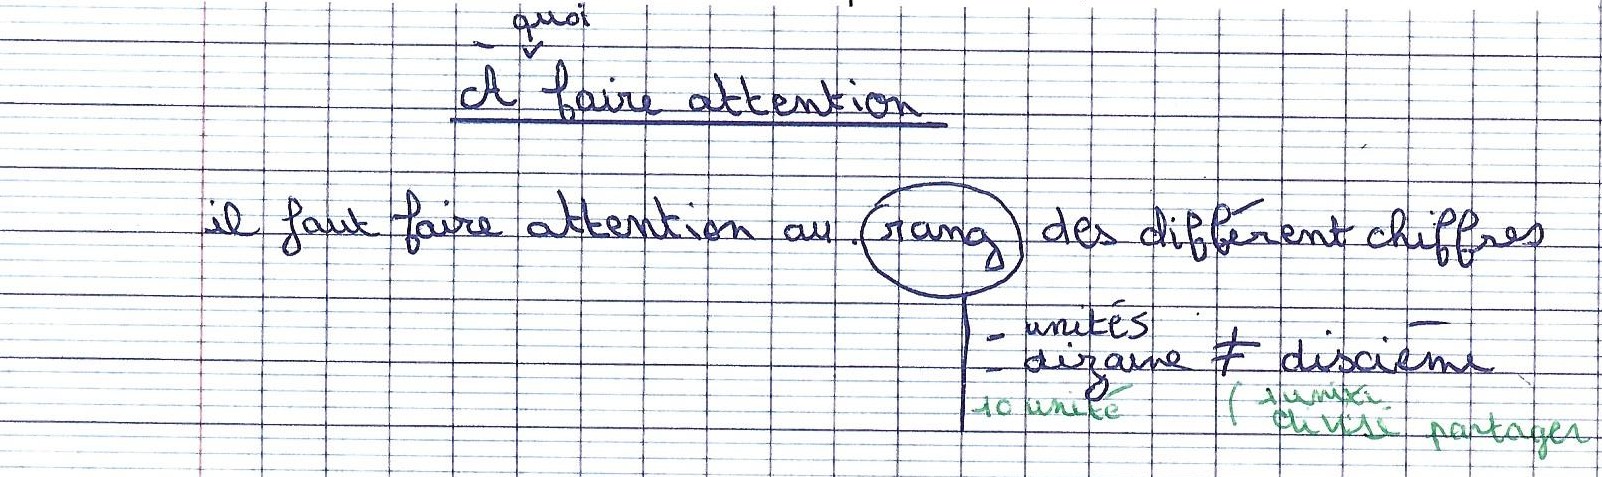 quoi
À faire attention
il faut faire attention au rang des différent chiffres
- unités
- dizaine ≠ discième
10 unité
( 1 unité
divisé partager